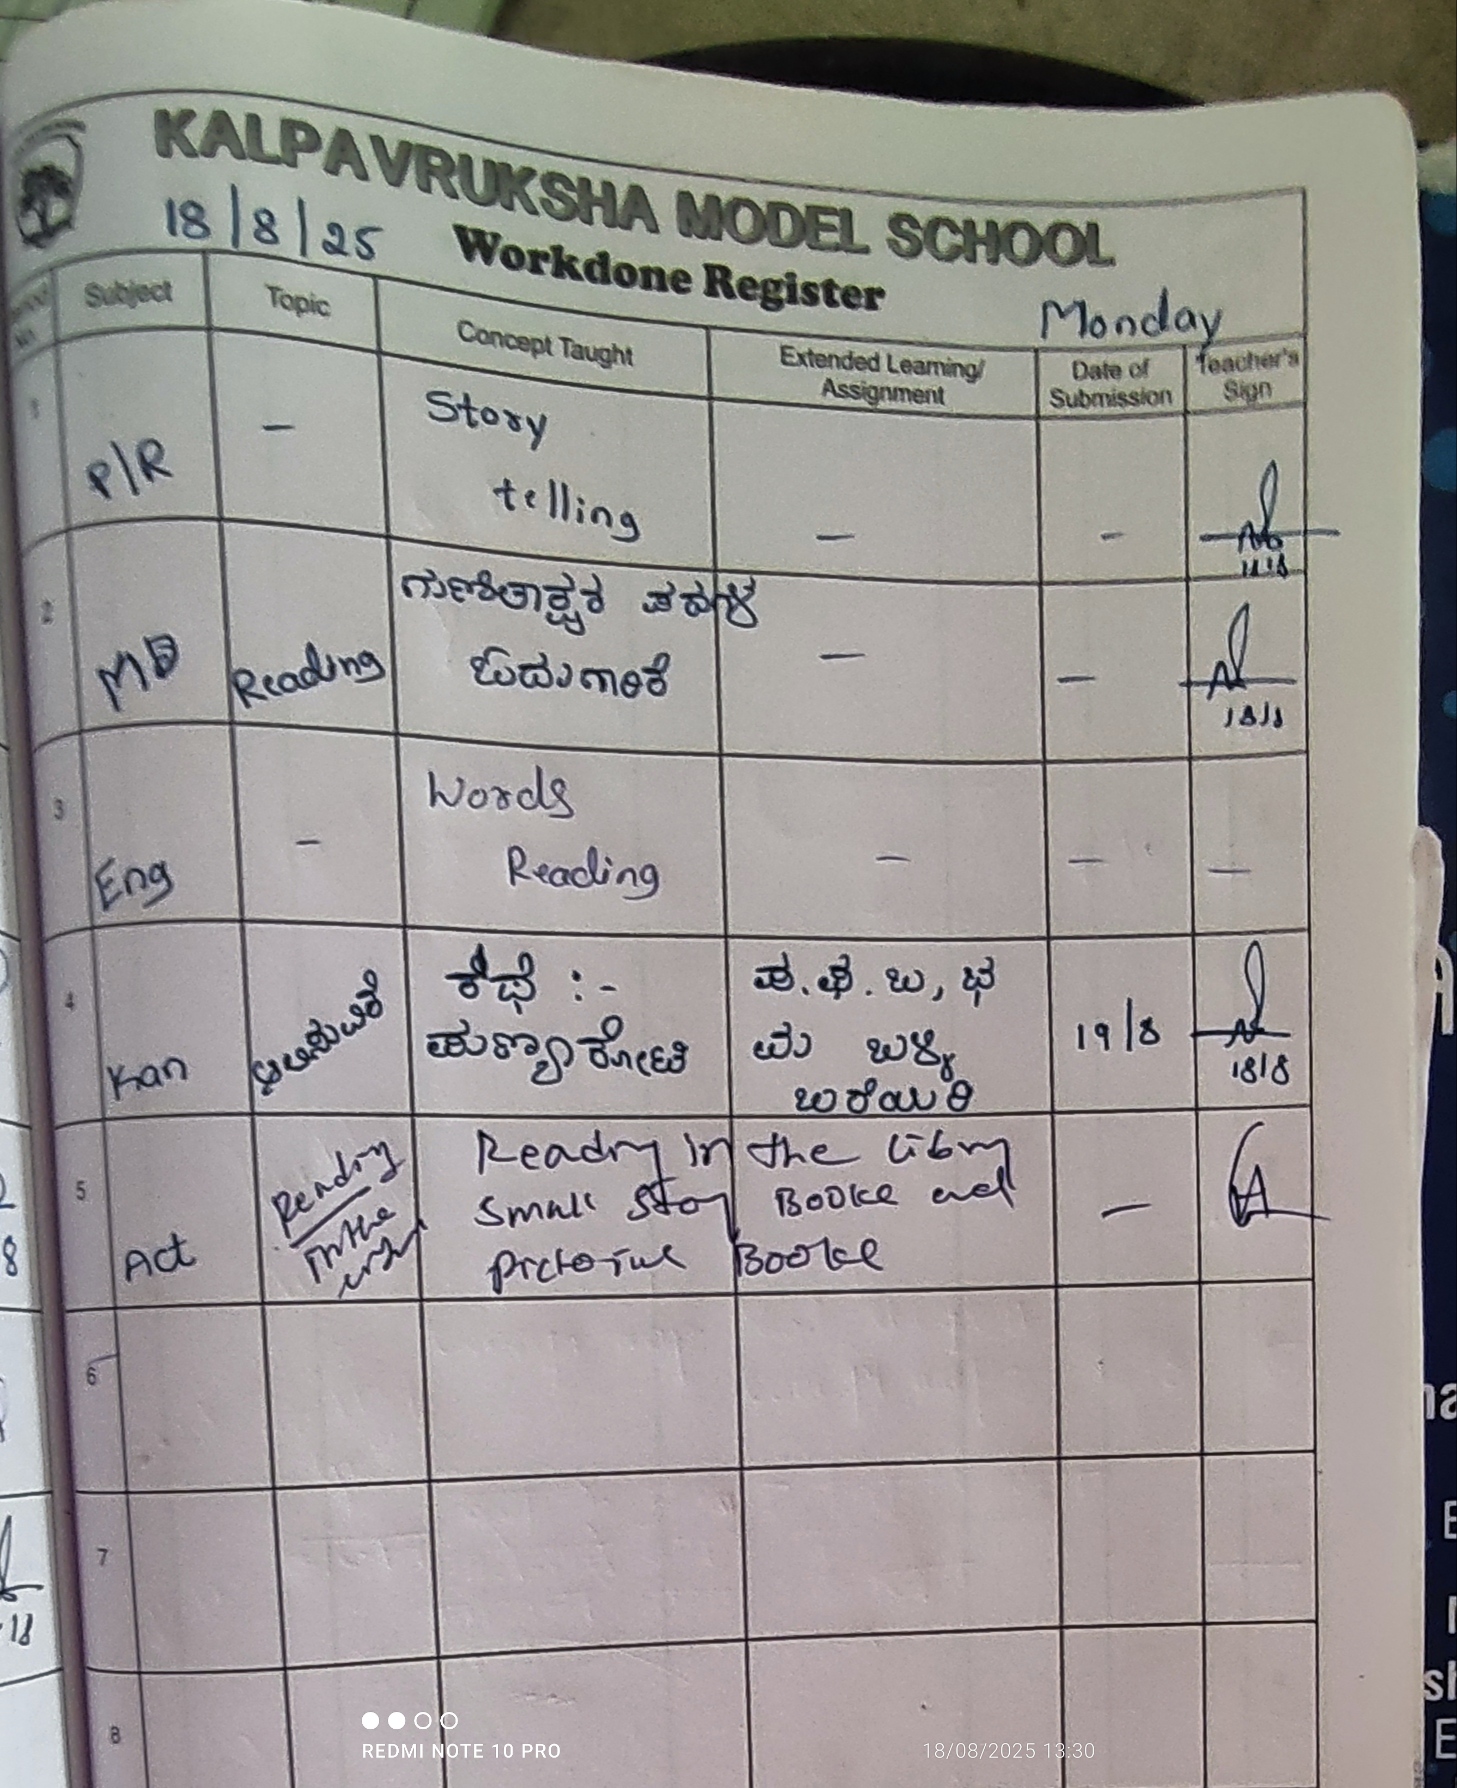 KALPAVRUKSHA MODEL SCHOOL
18/8/25 Workdone Register
Monday
Subject Topic Concept Taught Extended Learning/ Assignment Date of Submission Teacher's Sign
1 P/R - Story
telling - -
18/8
2 ಗುಣಿತಾಕ್ಷರ ಪದಗಳ
Reading ಓದುಗಾರಿಕೆ - -
18/8
3 Words
Eng - Reading - - -
4 ಕಥೆ :- ಪ. ಫ. ಬ, ಭ
Kan ಪುಣ್ಯಕೋಟಿ ಮ ಬಳ್ಳಿ 19/8
ಬರೆಯಿರಿ 18/8
5 Reading Reading in the
Act in the Small Story Books and -
Books
6
7
8
REDMI NOTE 10 PRO 18/08/2025 13:30